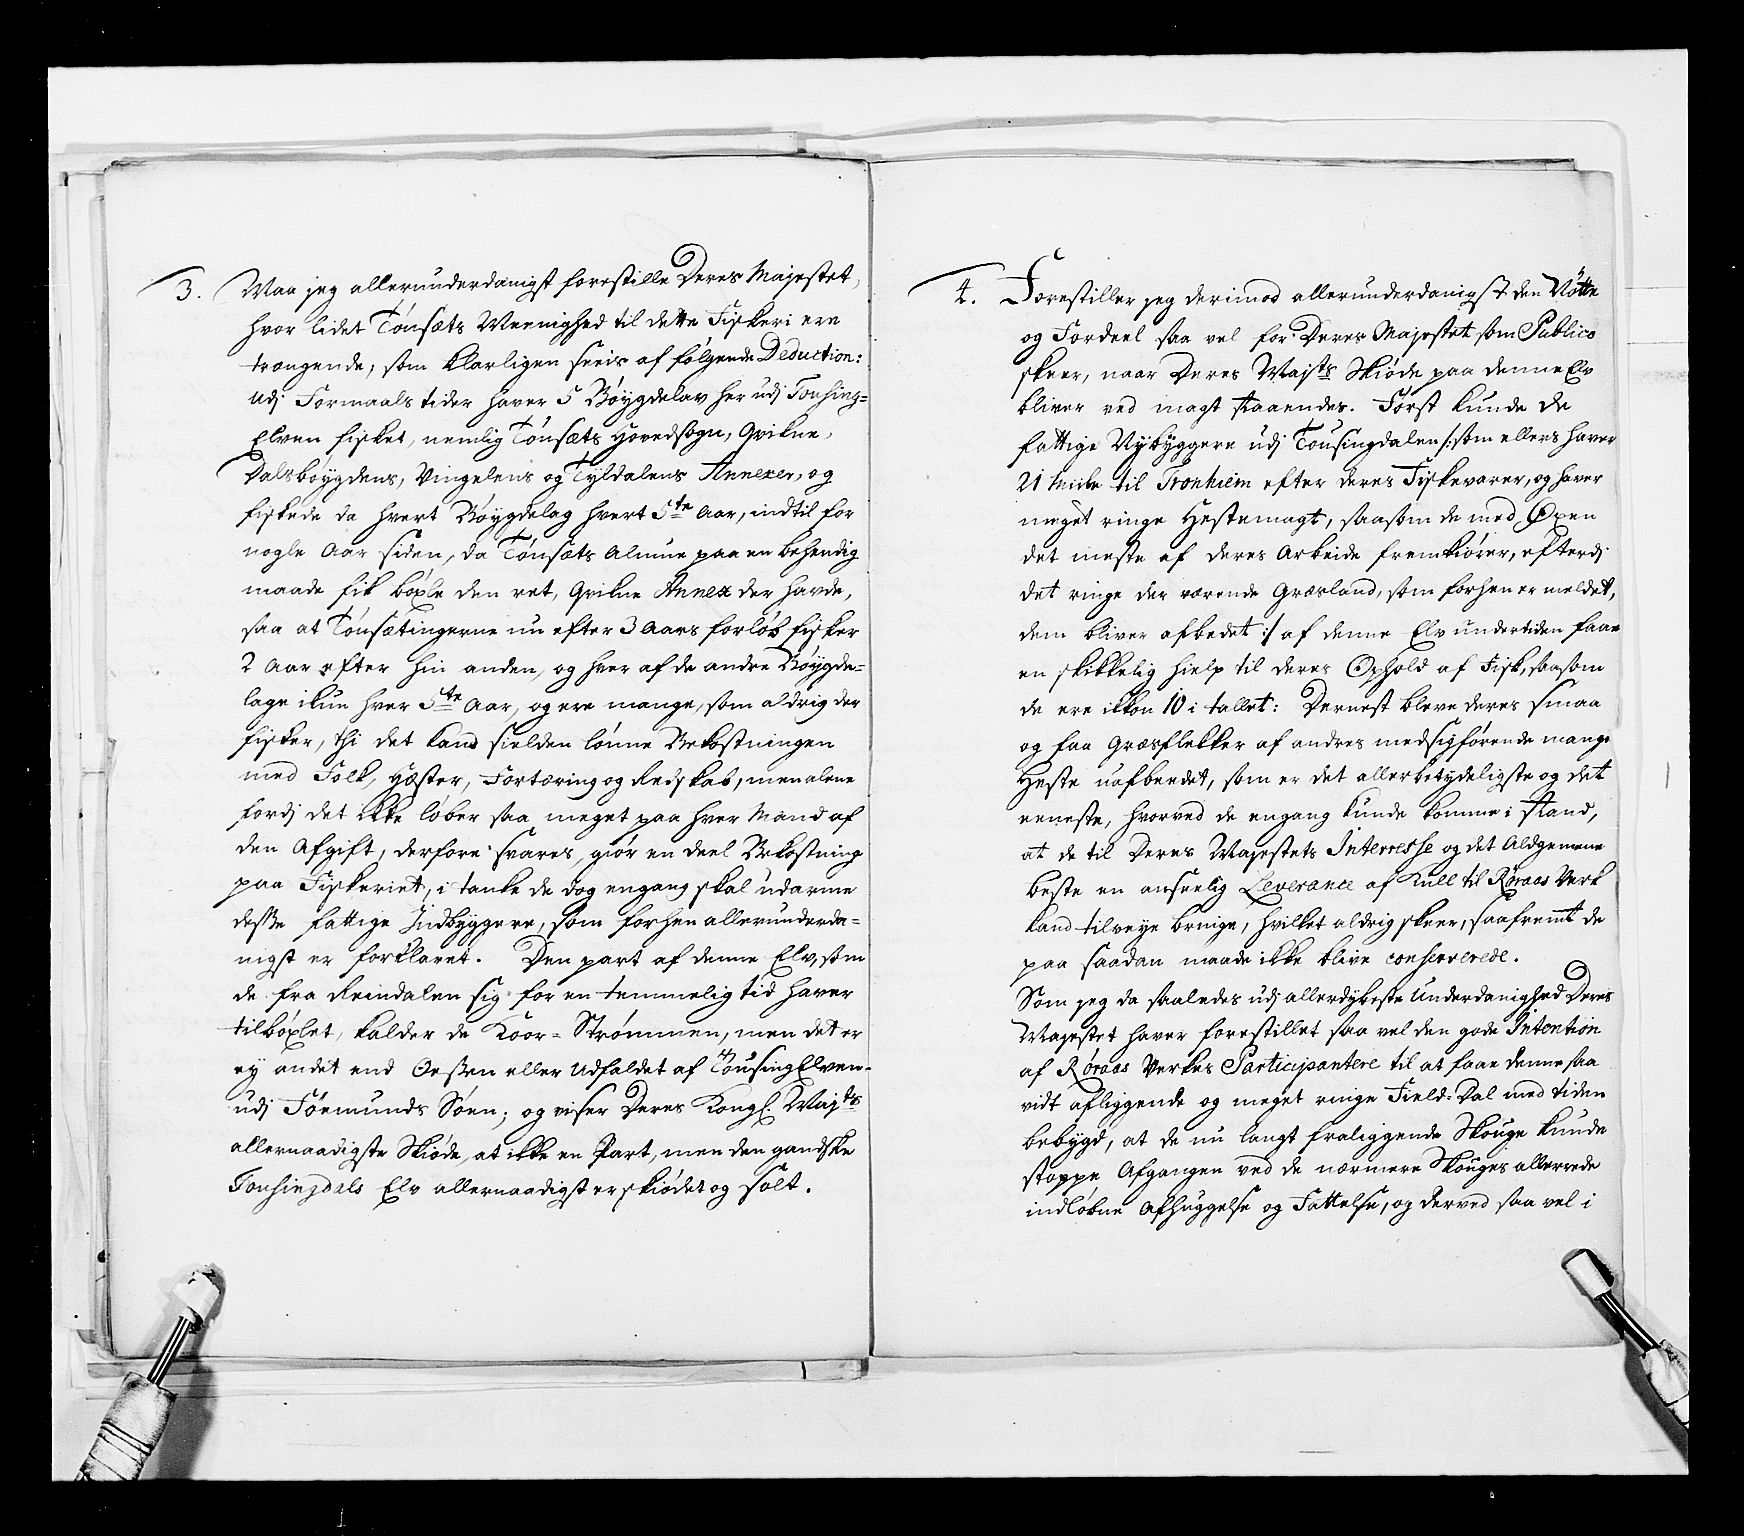 3. Maa jeg allerunderdanigst forestille Deres Majestet,
hvor lidet Tónsæts Meenighed til dette Fiskeri ere
trængende, som klarligen sees af følgende Deduction:
udj Formaals tider haver 5 Bóygdelav her udj Tousing-
Elven fisket, nemlig Tónsæts Hovedsogn, Qvikne,
Dalsbøygdens, Vingelens og Tyldalens Annexer, og
fiskede da hvert Bóygdelag hvert 5te Aar, indtil for
nogle Aar siden, da Tónsæts Almue paa en behendig
maade fik bóxle den ret, Qvikne Annex der havde,
saa at Tónsætingerne nu efter 3 Aars forlób fisker
2 Aar efter hin anden, og hver af de andre Bóygde-
lage ikun hver 5te Aar, og ere mange, som aldrig der
fisker, thi det kand sielden lónne Bekostningen
med Folk, Hæster, Fortæring og Redskab, men alene
fordj det ikke lóber saa meget paa hver Mand af
den Afgift, derfore svares, giór en deel Bekostning
paa Fiskeriet, i tanke de dog engang skal udarme
desse fattige Indbyggere, som forhen allerunderda-
nigst er forklaret. Den part af denne Elv, som
de fra Reindalen sig for en temmelig tid haver
tilbóxlet, kalder de Koor-Strømmen, men det er
ey andet end Oessen eller Udfaldet af Tousing Elven
udj Fæmunds Søen; og viser Deres Kongl. Majts
allernaadigste Skióde, at ikke en Part, men den gandske
Tousingdals Elv allernaadigst er skiódet og solt.
4. Forestiller jeg derimod allerunderdanigst den Nótte
og Fordeel saa vel for Deres Majestet som Publico
skeer, naar Deres Majsts Skióde paa denne Elv
bliver ved magt staaendes. Først kunde de
fattige Nybyggere udj Tousingdalen /: som ellers haver
21 Miile til Tronhiem efter deres Fiskevarer, og haver
meget ringe Hestemagt, saasom de med Øxen
det meste af deres Arbeide fremkiører, efterdj
det ringe der værende Græsland, som forhen er meldet,
dem bliver afbedet :/ af denne Elv undertiden faae
en skikkelig hielp til deres Ophold af Fisk, saasom
de ere ikkon 10 i tallet: Dernest bleve deres smaa
og faa Græsflekker af andres medsigførende mange
Heste uafbeedet, som er det allerbetydeligste og det
eeneste, hvorved de engang kunde komme i Stand,
at de til Deres Majestets Interresse og det Aldgemene
beste en anseelig Leverance af Kull til Røraas Verk
kand tilveye bringe, hvilket aldrig skeer, saafremt de
paa saadan maade ikke blive conserverede.
Som jeg da saaledes udj allerdybeste Underdanighed Deres
Majestet haver forestillet saa vel den gode Intention
af Røraas Verkes Participantere til at faae denne saa
vidt afliggende og meget ringe Field-Dal med tiden
bebygd, at de nu langt fraliggende Skouge kunde
stoppe Afgangen ved de nærmere Skouges allerrede
indløbne Afhuggelse og Fattelse, og derved saa vel i